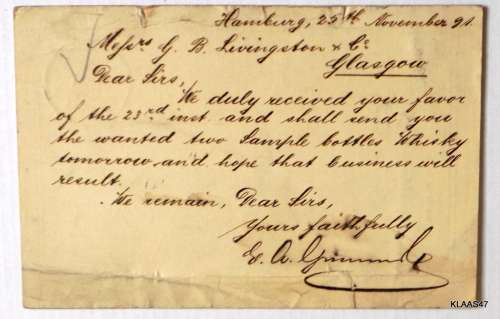 Hamburg, 25th November 91.
Messrs G. B. Livingston & Co
Glasgow
Dear Sirs,
We duly received your favor
of the 23rd inst. and shall send you
the wanted two Sample bottles Whisky
tomorrow and hope that business will
result.
We remain, Dear Sirs,
Yours faithfully
E. A.
KLAAS47